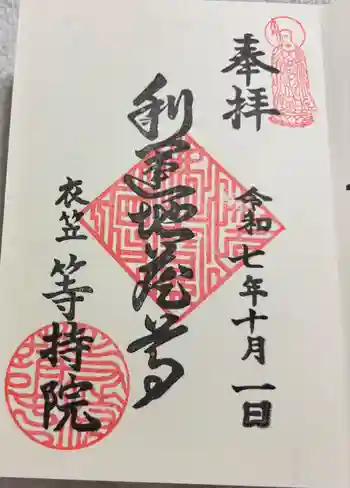 奉拝
令和七年十月一日
利運地蔵尊
衣笠
等持院